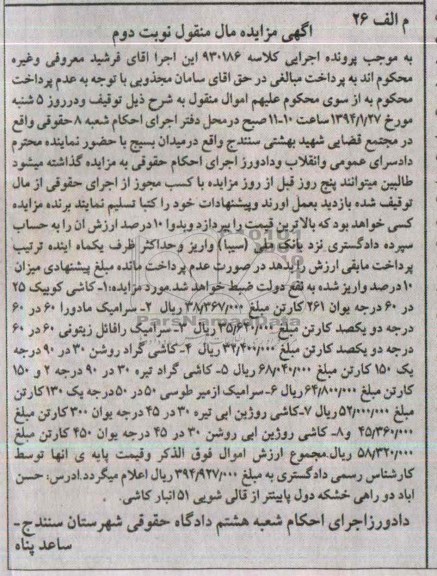 م الف ۲۶
آگهی مزایده مال منقول نوبت دوم
به موجب پرونده اجرایی کلاسه ۹۳۰۱۸۶ این اجرا اقای فرشید معروفی وغیره
محکوم اند به پرداخت مبالغی در حق اقای سامان مجذوبی با توجه به عدم پرداخت
محکوم به از سوی محکوم علیهم اموال منقول به شرح ذیل توقیف ودرروز ۵ شنبه
مورخ ۱۳۹۴/۱/۲۷ ساعت ۱۰-۱۱ صبح درمحل دفتر اجرای احکام شعبه ۸ حقوقی واقع
در مجتمع قضایی شهید بهشتی سنندج واقع درمیدان بسیج با حضور نماینده محترم
دادسرای عمومی وانقلاب ودادورز اجرای احکام حقوقی به مزایده گذاشته میشود
طالبین میتوانند پنج روز قبل از روز مزایده با کسب مجوز از اجرای حقوقی از مال
توقیف شده بازدید بعمل اورند وپیشنهادات خود را کتبا تسلیم نمایند برنده مزایده
کسی خواهد بود که بالاترین قیمت را بپردازد وبدوا ۱۰ درصد ارزش ان را به حساب
سپرده دادگستری نزد بانک ملی (سیبا) واریز وحداکثر ظرف یکماه اینده ترتیب
پرداخت مابقی ارزش را بدهد در صورت عدم پرداخت مانده مبلغ پیشنهادی میزان
۱۰ درصد واریز شده به نفع دولت ضبط خواهد شد.مورد مزایده:۱- کاشی کوبیک ۲۵
در ۶۰ درجه یوان ۲۶۱ کارتن مبلغ ۳۸/۳۶۷/۰۰۰ ریال ۲- سرامیک مادورا ۶۰ در ۶۰
درجه دو یکصد کارتن مبلغ ۳۵/۶۴۰/۰۰۰ ریال ۳- سرامیک رافائل زیتونی ۶۰ در ۶۰
درجه دو یکصد کارتن مبلغ ۳۲/۴۰۰/۰۰۰ ریال ۴- کاشی گراد روشن ۳۰ در ۹۰ درجه
یک ۱۵۰ کارتن مبلغ ۶۸/۰۴۰/۰۰۰ ریال ۵- کاشی گراد تیره ۳۰ در ۹۰ درجه ۲ و ۱۵۰
کارتن مبلغ ۶۴/۸۰۰/۰۰۰ ریال ۶- سرامیک ازمیر طوسی ۵۰ در ۵۰ درجه یک ۱۳۰ کارتن
مبلغ ۵۲/۰۰۰/۰۰۰ ریال ۷- کاشی روژین ابی تیره ۳۰ در ۴۵ درجه یوان ۳۰۰ کارتن مبلغ
۴۵/۳۶۰/۰۰۰ و۸- کاشی روژین ابی روشن ۳۰ در ۴۵ درجه یوان ۴۵۰ کارتن مبلغ
۵۸/۳۲۰/۰۰۰ ریال.مجموع ارزش اموال فوق الذکر وقیمت پایه ی انها توسط
کارشناس رسمی دادگستری به مبلغ ۳۹۴/۹۲۷/۰۰۰ ریال اعلام میگردد.ادرس: حسن
اباد دو راهی خشکه دول پایینتر از قالی شویی ۵۱ انبار کاشی.
دادورزاجرای احکام شعبه هشتم دادگاه حقوقی شهرستان سنندج-
ساعد پناه